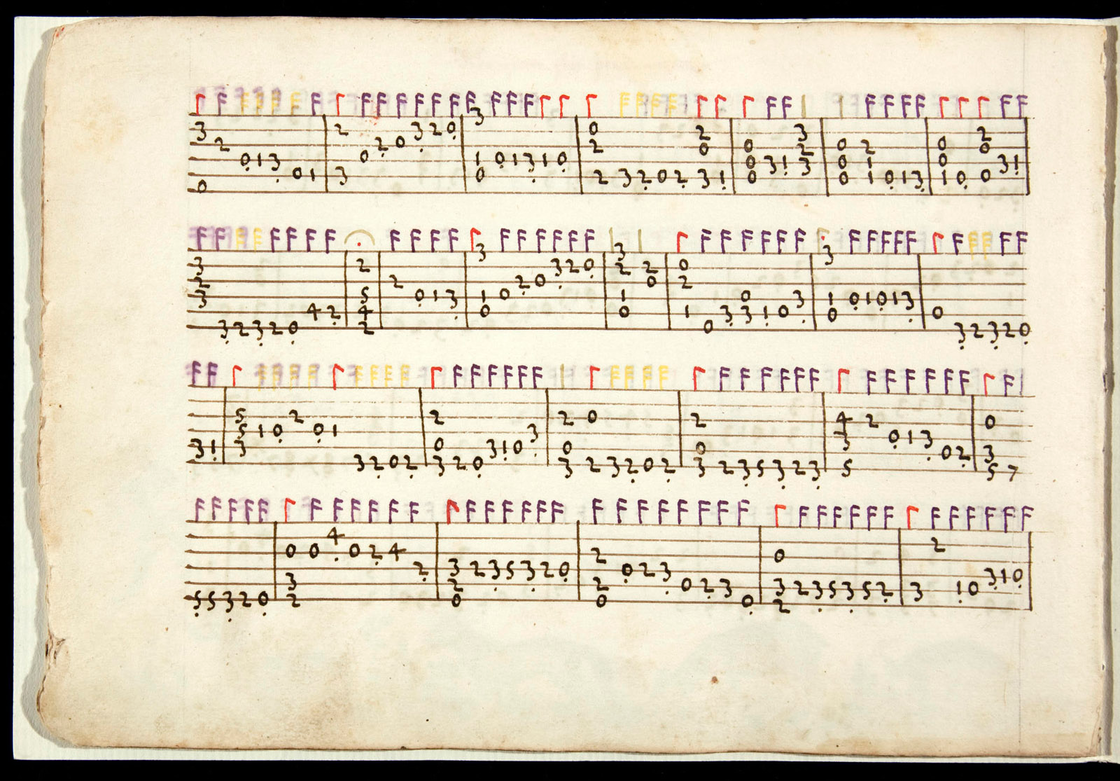 3 0 2 0 1 3 0 1 | 2 3 0 2 0 3 2 0 | 3 1 0 0 1 3 1 0 | 0 2 2 3 2 0 2 2 0 3 1 | 0 0 0 3 1 3 2 3 | 0 0 0 2 1 1 0 1 3 | 0 0 1 0 2 0 0 3 1 |
3 2 3 3 2 3 2 0 4 2 | 2 5 4 2 | 2 0 1 3 | 3 1 0 0 2 0 3 2 0 | 3 2 1 0 2 0 | 0 2 1 0 3 0 3 1 0 3 | 3 1 0 0 1 0 1 3 | 0 3 2 3 2 0
3 1 | 5 5 3 1 0 2 0 1 3 2 0 2 | 2 0 3 2 0 3 1 0 3 | 2 0 3 0 2 3 2 0 2 | 2 0 3 2 3 5 3 2 3 | 4 3 5 2 0 1 3 0 2 | 0 3 5 7
5 5 3 2 0 | 0 3 2 0 4 0 2 4 2 | 3 2 0 2 3 5 3 2 0 | 2 2 0 0 2 3 0 2 3 0 | 0 3 2 2 3 5 3 5 2 | 3 2 1 0 3 1 0 |